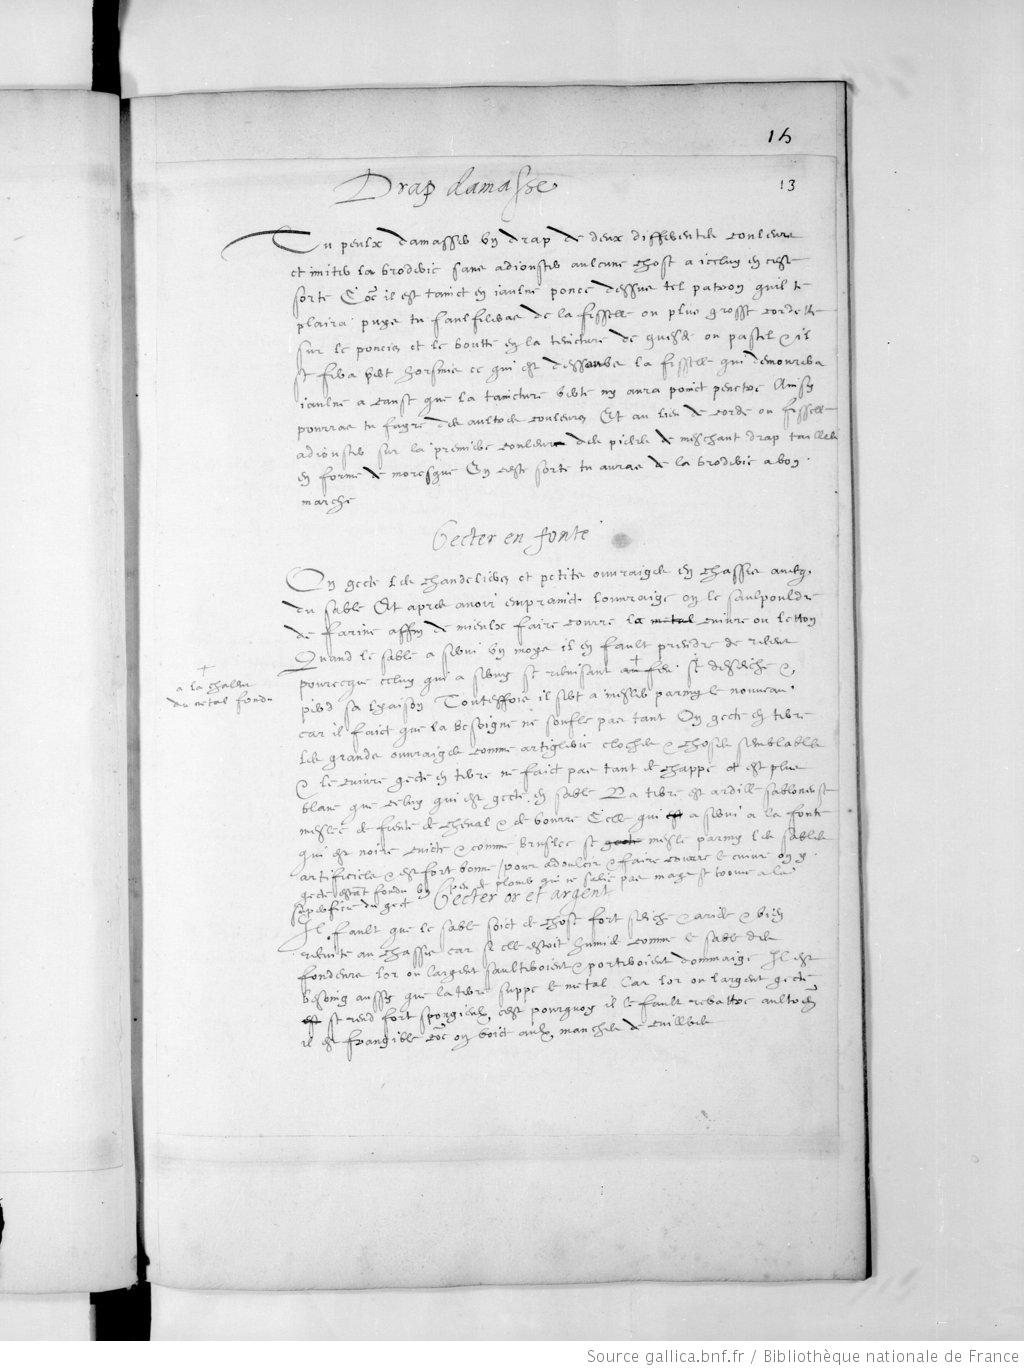 15
13
Drap damasse
Tu peulx damasser un drap de deux differentes couleurs
et imiter la broderie sans adiouster aulcune chose a icelluy en ceste
sorte Co{mm}e il est tainct en jaulne ponce dessus tel patron quil te
plaira puys tu faulfileras de la fisselle ou plus grosse cordelle
sur le poncis et le boutte en la teincture de guesde ou pastel & il
se fera vert horsmis ce qui est dessoubs la fisselle qui demourera
jaulne a cause que la taincture verte ny aura poinct penetre Ainsy
pourras tu fayre des aultres couleurs Et au lieu de corde ou fisselle
adiouster sur la premiere couleur des pieces de meschant drap taillees
en forme de moresque En ceste sorte tu auras de la broderie a bon
marche
Gecter en fonte
On gecte les chandeliers et petits ouvraiges en chassis avecq
du sable Et apres avoir empraint louvraige on le saulpouldre
de farine affin de mieulx faire courre le metal cuivre ou letton
Quand le sable a servi un moys il en fault prendre de recent
pource que celluy qui a servy se recuisant au feu se desseiche &
+
a la chaleur
du metal fondu
perd sa liaison Touteffois il sert a mesler parmy le nouveau
car il faict que la besoigne ne soufle pas tant On gecte en terre
les grands ouvraiges comme artiglerie cloches & choses semblables
& le cuivre gecte en terre ne faict pas tant de chappe et est plus
blanc que celuy qui est gecte en sable La terre est ardille sabloneuse
meslee de fiente de cheval & de bourre Celle qui est a servi a la fonte
qui est noire cuicte & comme bruslee se gecte mesle parmy les sables
artificiels & est fort bonne pour adoulcir & faire courre le cuivre on y
gecte estant fondu un peu de plomb qui ne salie pas mays se trouve a la
superficie du gect
Gecter or et argent
Il fault que le sable soict de chose fort seiche & aride & bien
recuite au chassis car si elle estoit humide comme le sable des
fondeurs lor ou largent saulteroient & porteroient dommaige Il est
besoing aussy que la terre suppe le metal Car lor ou largent gecte
est se rend fort spongieulx, cest pourquoy il le fault rebattre aultrem{ent}
il est frangible co{mm}e on voict aulx manches de cuilleres